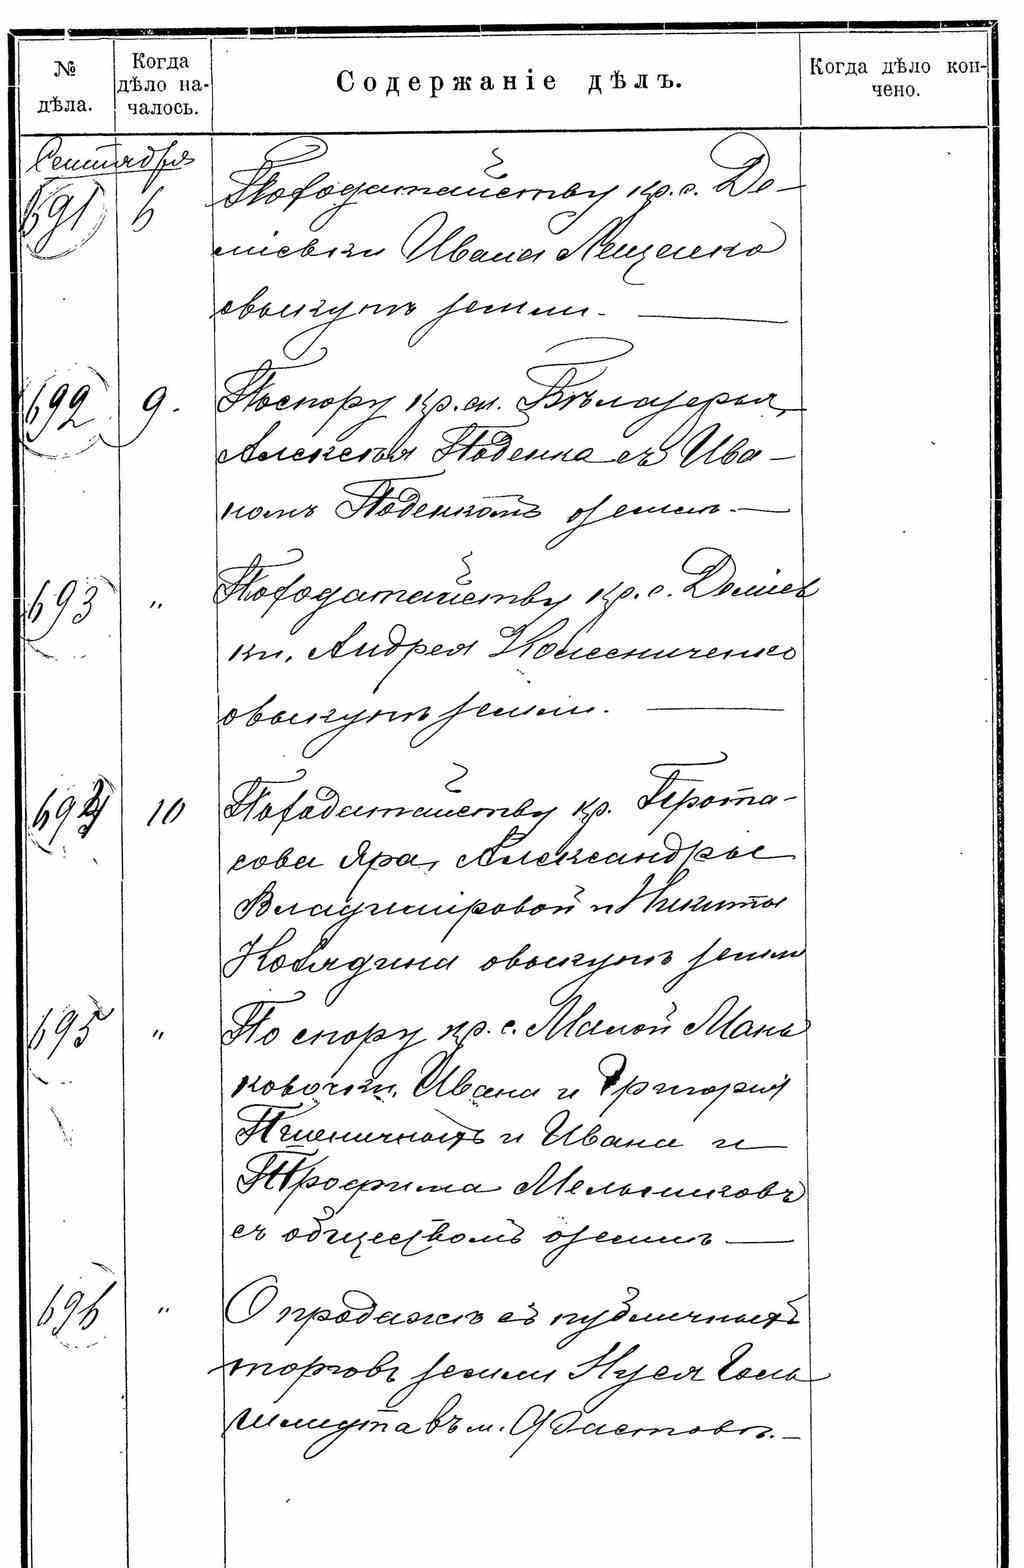 № дѣла.
Когда дѣло началось.
Содержаніе дѣлъ.
Когда дѣло кончено.
Сентября
691 6 По ходатайству кр. с. Де-
міевки Ивана Лещенко
о выкупѣ земли.
692 9. По спору кр. м. Бѣлозерья,
Алексѣя Поденка съ Ива-
номъ Поденкомъ о землѣ.
693 " По ходатайству кр. с. Деміев
ки, Андрея Колесниченко
о выкупѣ земли.
694 10 По ходатайству кр. Прота-
сова Яра, Александры
Владиміровой и Никиты
о выкупѣ земли
695 " По спору кр. с. Малой Мань
ковочки, Ивана и Григорія
Пшеничныхъ и Ивана и
Трофима Мельниковъ
съ обществомъ о землѣ
696 " О продажѣ съ публичныхъ
торговъ земли Нуся Голь
шмидта въ м. Фастовѣ.